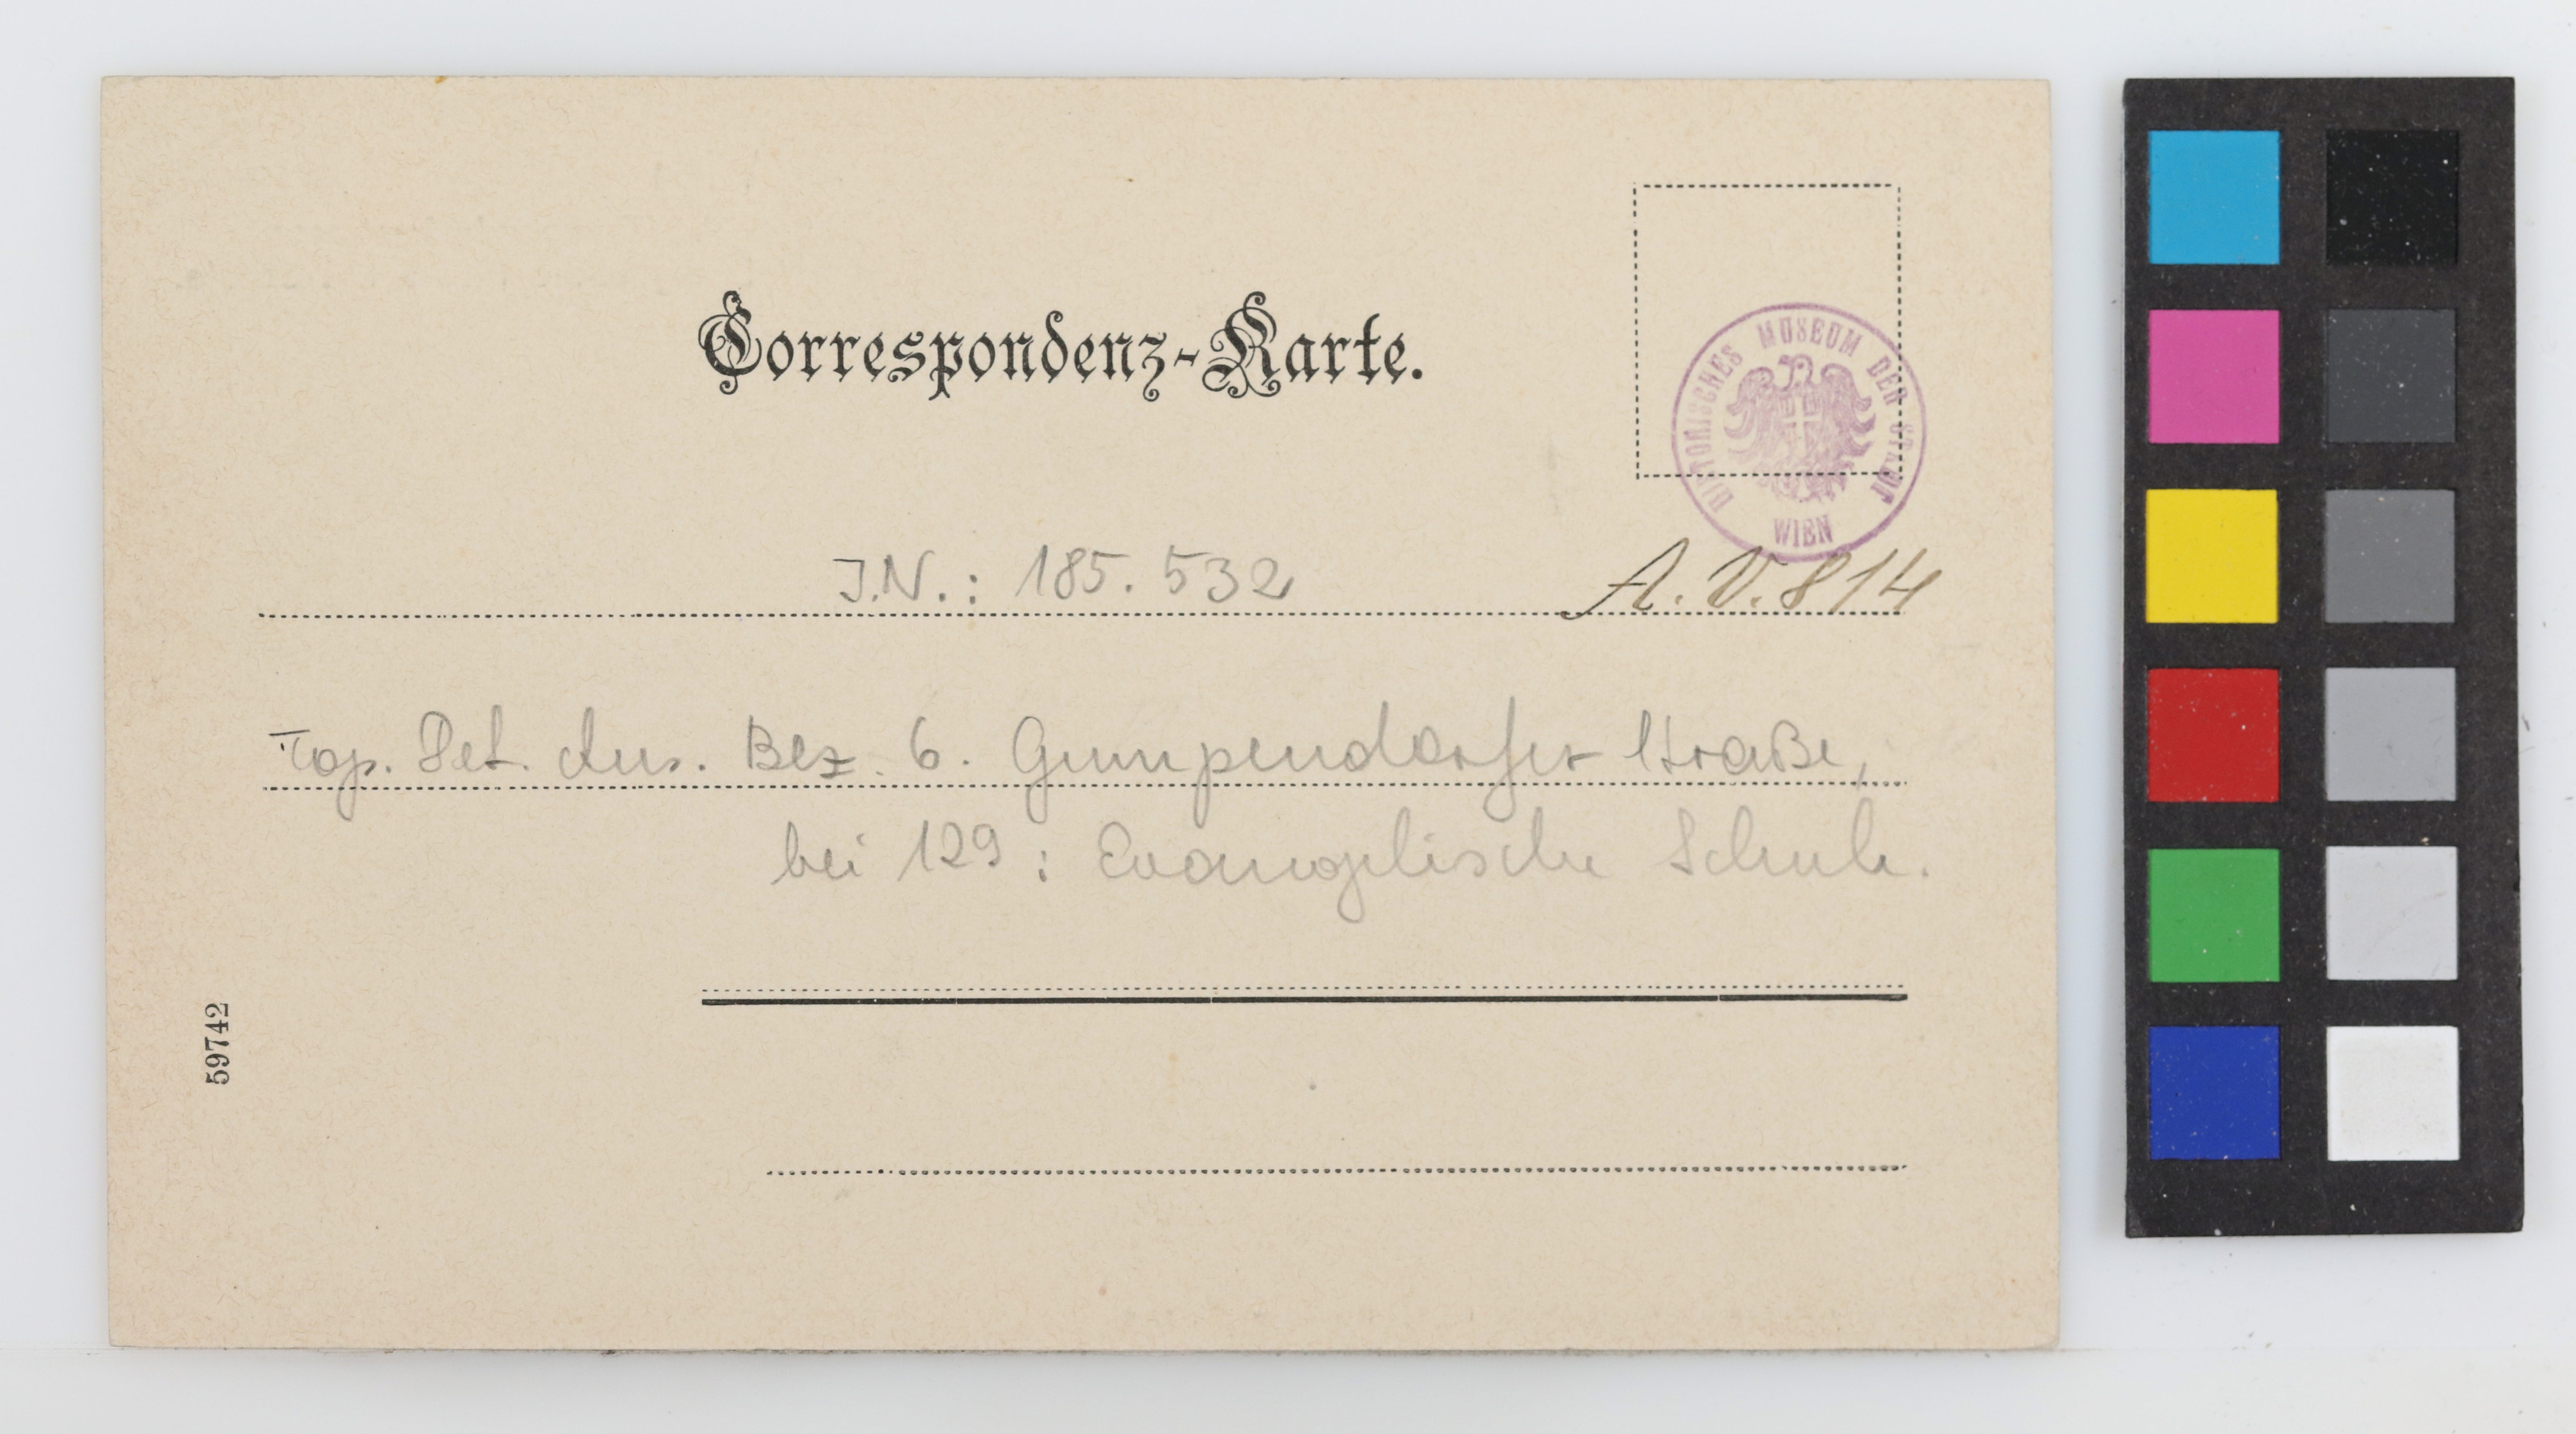 Correspondenz-Karte.
HISTORISCHES MUSEUM DER STADT WIEN
J.N.: 185.532
A.V. 814
Top. Det. Ans. Bez. 6. Gumpendorfer Straße,
bei 129: Evangelische Schule.
59742